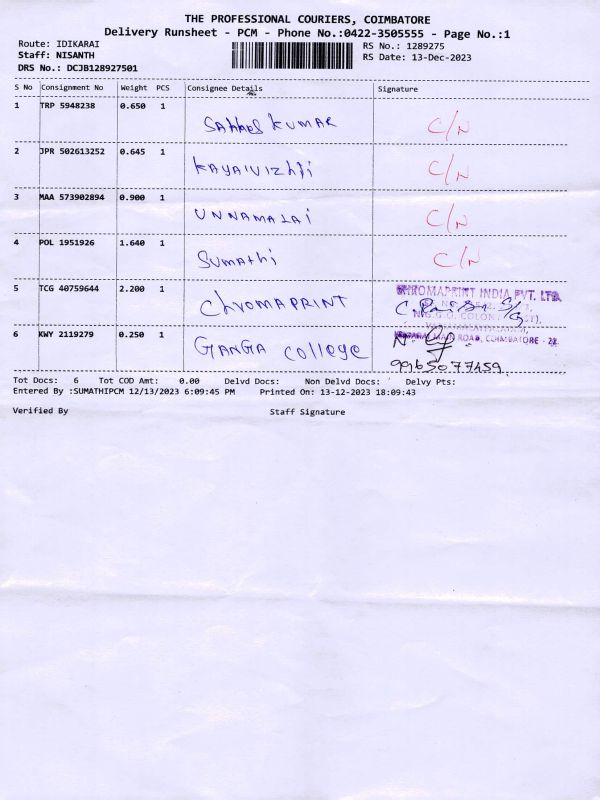 THE PROFESSIONAL COURIERS, COIMBATORE
Delivery Runsheet - PCM - Phone No.:0422-3505555 - Page No.:1
Route: IDIKARAI
RS No.: 1289275
Staff: NISANTH
RS Date: 13-Dec-2023
DRS No.: DCJB128927501
S No Consignment No Weight PCS Consignee Details Signature
1 TRP 5948238 0.650 1
SAHHES KUMAR C/N
2 JPR 502613252 0.645 1
KAYALVIZHI C/N
3 MAA 573902894 0.900 1
UNNAMALAI C/N
4 POL 1951926 1.640 1
SUMATHI C/N
5 TCG 40759644 2.200 1
CHROMAPRINT CHROMAPRINT INDIA PVT. LTD.
6 KWY 2119279 0.250 1
GANGA College ROAD, COIMBATORE - 22.
9965077459
Tot Docs: 6 Tot COD Amt: 0.00 Delvd Docs: Non Delvd Docs: Delvy Pts:
Entered By :SUMATHIPCM 12/13/2023 6:09:45 PM Printed On: 13-12-2023 18:09:43
Verified By Staff Signature